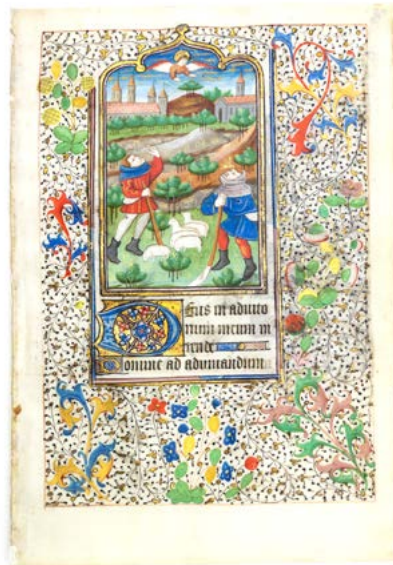 Deus in adiuto
rium meum in
tende
Domine ad adiuuandum